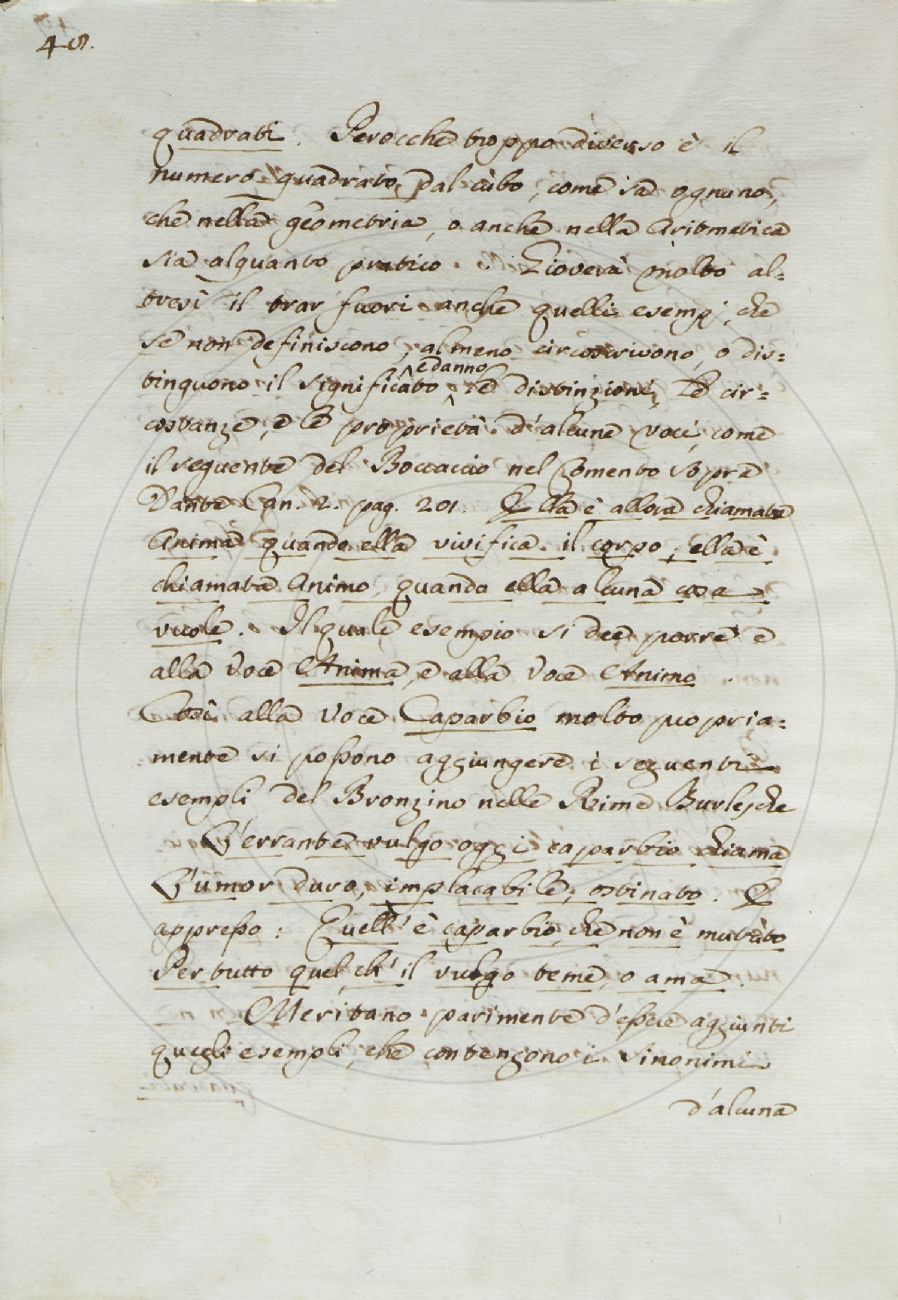 48.
quadrati. Perocchè troppo diverso è il
numero quadrato dal cubo, come sa ognuno,
che nella geometria, o anche nella Aritmetica
sia alquanto pratico. Gioverà molto al=
tresì il trar fuori anche quelli esempj, che
se non definiscono, almeno circoscrivono, o dis=
tinguono il significato e danno le distinzioni, le cir=
costanze, e le proprietà d'alcune voci, come
il seguente del Boccaccio nel Comento sopra
Dante Can. 2. pag. 201. Ella è allora chiamata
Anima quando ella vivifica il corpo, ella è
chiamata Animo, quando ella alcuna cosa
vuole. Il quale esempio si dee porre e
alla Voce Anima, e alla Voce Animo.
Così alla Voce Caparbio molto propria=
mente si possono aggiungere i seguenti
esempli del Bronzino nelle Rime Burlesche
L'errante vulgo oggi caparbio chiama
L'umor duro, implacabile, ostinato. E
appresso: Quell'è caparbio, che non è mutato
Per tutto quel, ch'il vulgo teme, o ama.
Meritano parimente d'essere aggiunti
quegli esempli, che contengono i sinonimi
d'alcuna